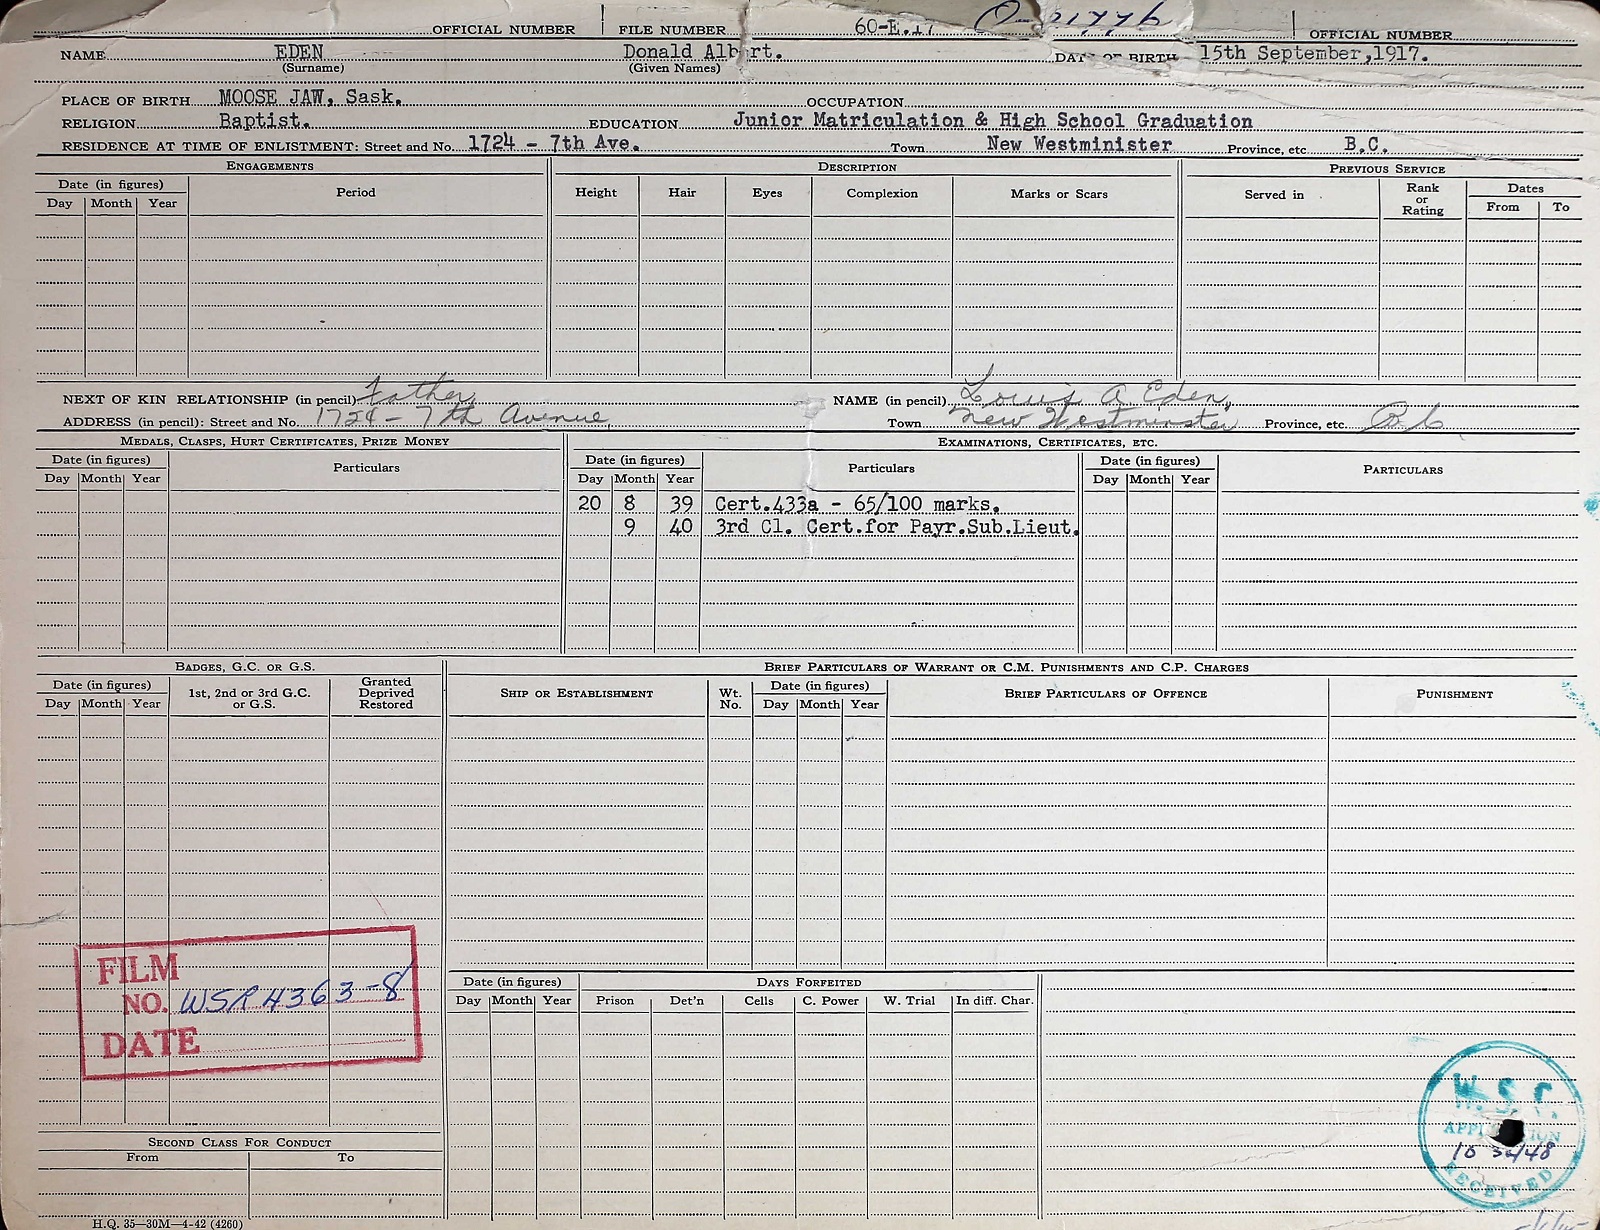 OFFICIAL NUMBER FILE NUMBER 60-E.17 OFFICIAL NUMBER
NAME EDEN Donald Albert. DATE OF BIRTH 15th September,1917.
(Surname) (Given Names)
PLACE OF BIRTH MOOSE JAW, Sask. OCCUPATION
RELIGION Baptist. EDUCATION Junior Matriculation & High School Graduation
RESIDENCE AT TIME OF ENLISTMENT: Street and No. 1724 - 7th Ave. Town New Westminister Province, etc B.C.
ENGAGEMENTS DESCRIPTION PREVIOUS SERVICE
Date (in figures) Period Height Hair Eyes Complexion Marks or Scars Served in Rank or Rating Dates
Day Month Year From To
NEXT OF KIN RELATIONSHIP (in pencil) Father NAME (in pencil) Louis A Eden,
ADDRESS (in pencil): Street and No. 1724 - 7th Avenue, Town New Westminster Province, etc. B.C.
MEDALS, CLASPS, HURT CERTIFICATES, PRIZE MONEY EXAMINATIONS, CERTIFICATES, ETC.
Date (in figures) Particulars Date (in figures) Particulars Date (in figures) PARTICULARS
Day Month Year Day Month Year Day Month Year
20 8 39 Cert.433a - 65/100 marks.
9 40 3rd Cl. Cert.for Payr.Sub.Lieut.
BADGES, G.C. OR G.S. BRIEF PARTICULARS OF WARRANT OR C.M. PUNISHMENTS AND C.P. CHARGES
Date (in figures) 1st, 2nd or 3rd G.C. or G.S. Granted Deprived Restored SHIP OR ESTABLISHMENT Wt. No. Date (in figures) BRIEF PARTICULARS OF OFFENCE PUNISHMENT
Day Month Year Day Month Year
FILM
NO. WSR 4363-8
DATE
Date (in figures) DAYS FORFEITED
Day Month Year Prison Det'n Cells C. Power W. Trial In diff. Char.
W. S. 
RECEIVED
SECOND CLASS FOR CONDUCT
From To
H.Q. 35—30M—4-42 (4260)